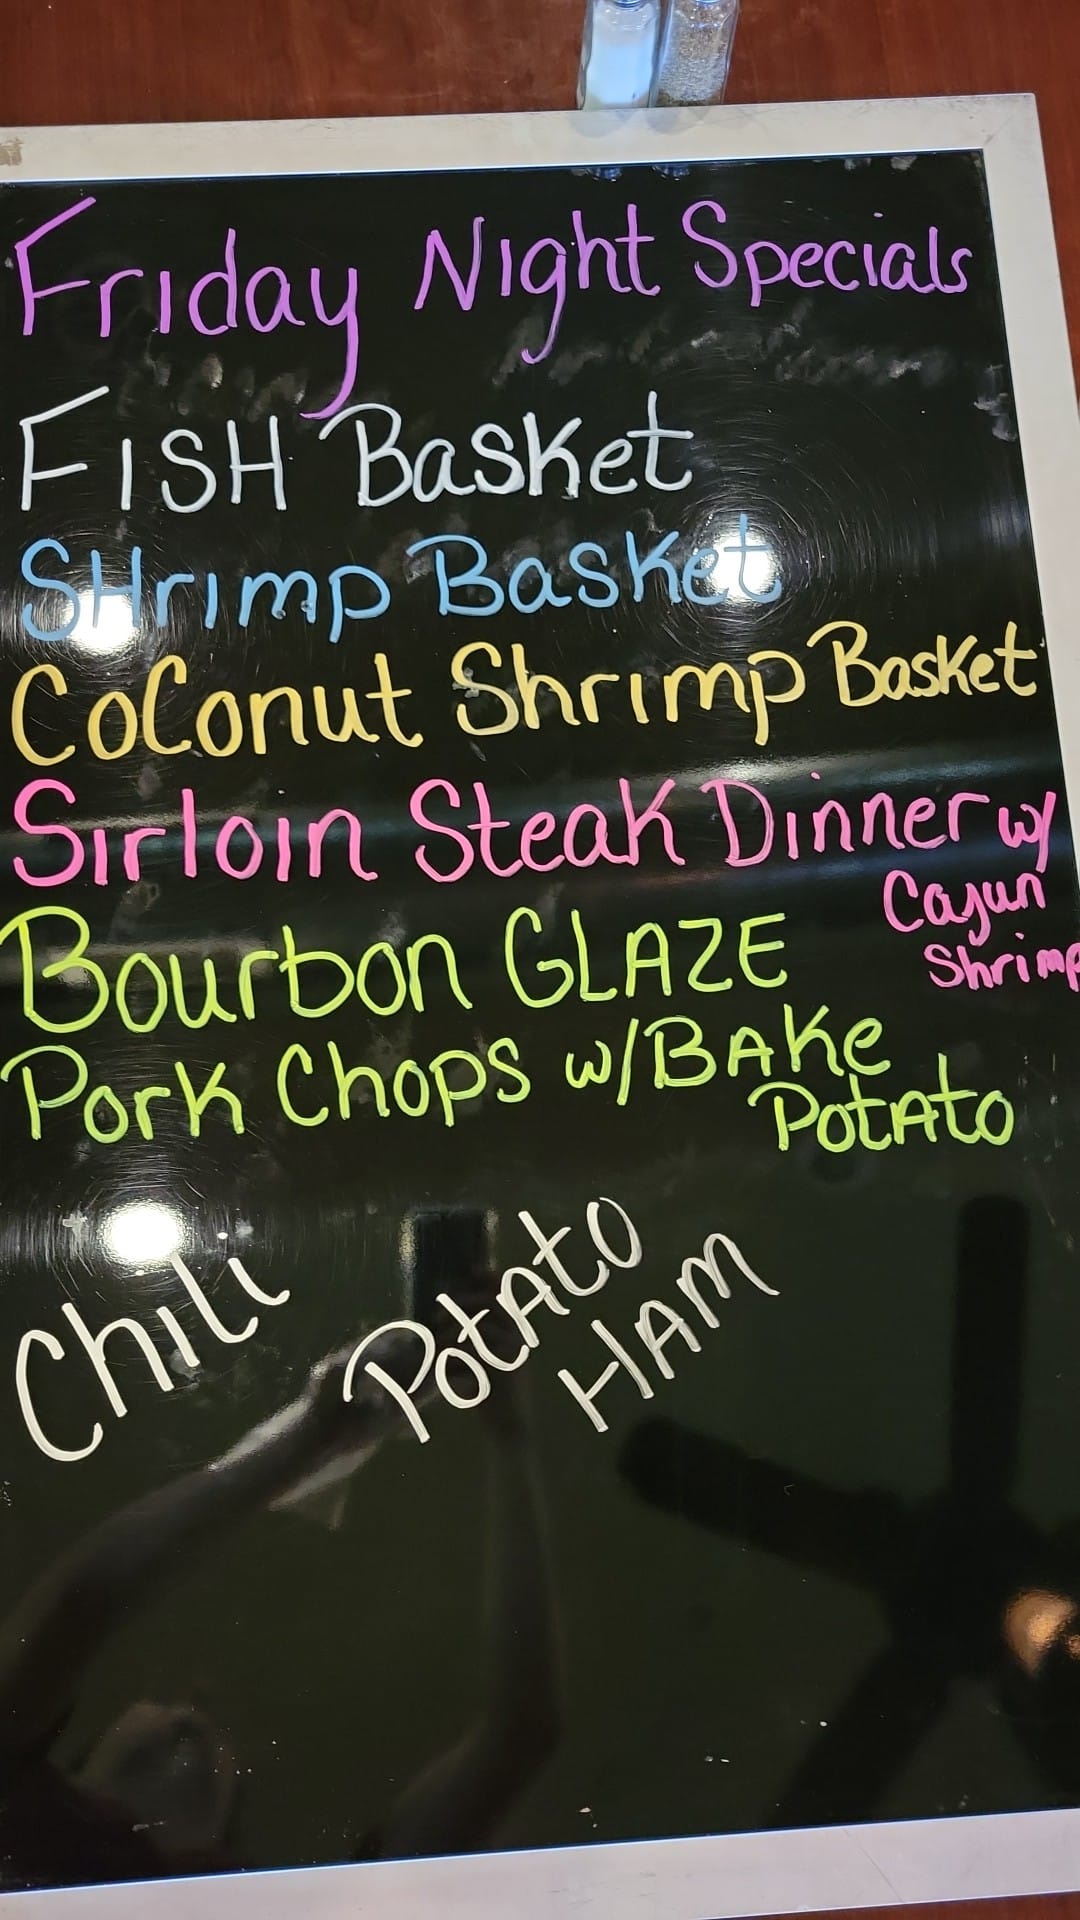 Friday Night Specials
FISH Basket
SHrimp Basket
CoConut Shrimp Basket
Sirloin Steak Dinner w/
Cajun
Shrimp
Bourbon GLAZE
Pork Chops w/BAKe
PotAto
Chili
PotAto
HAM